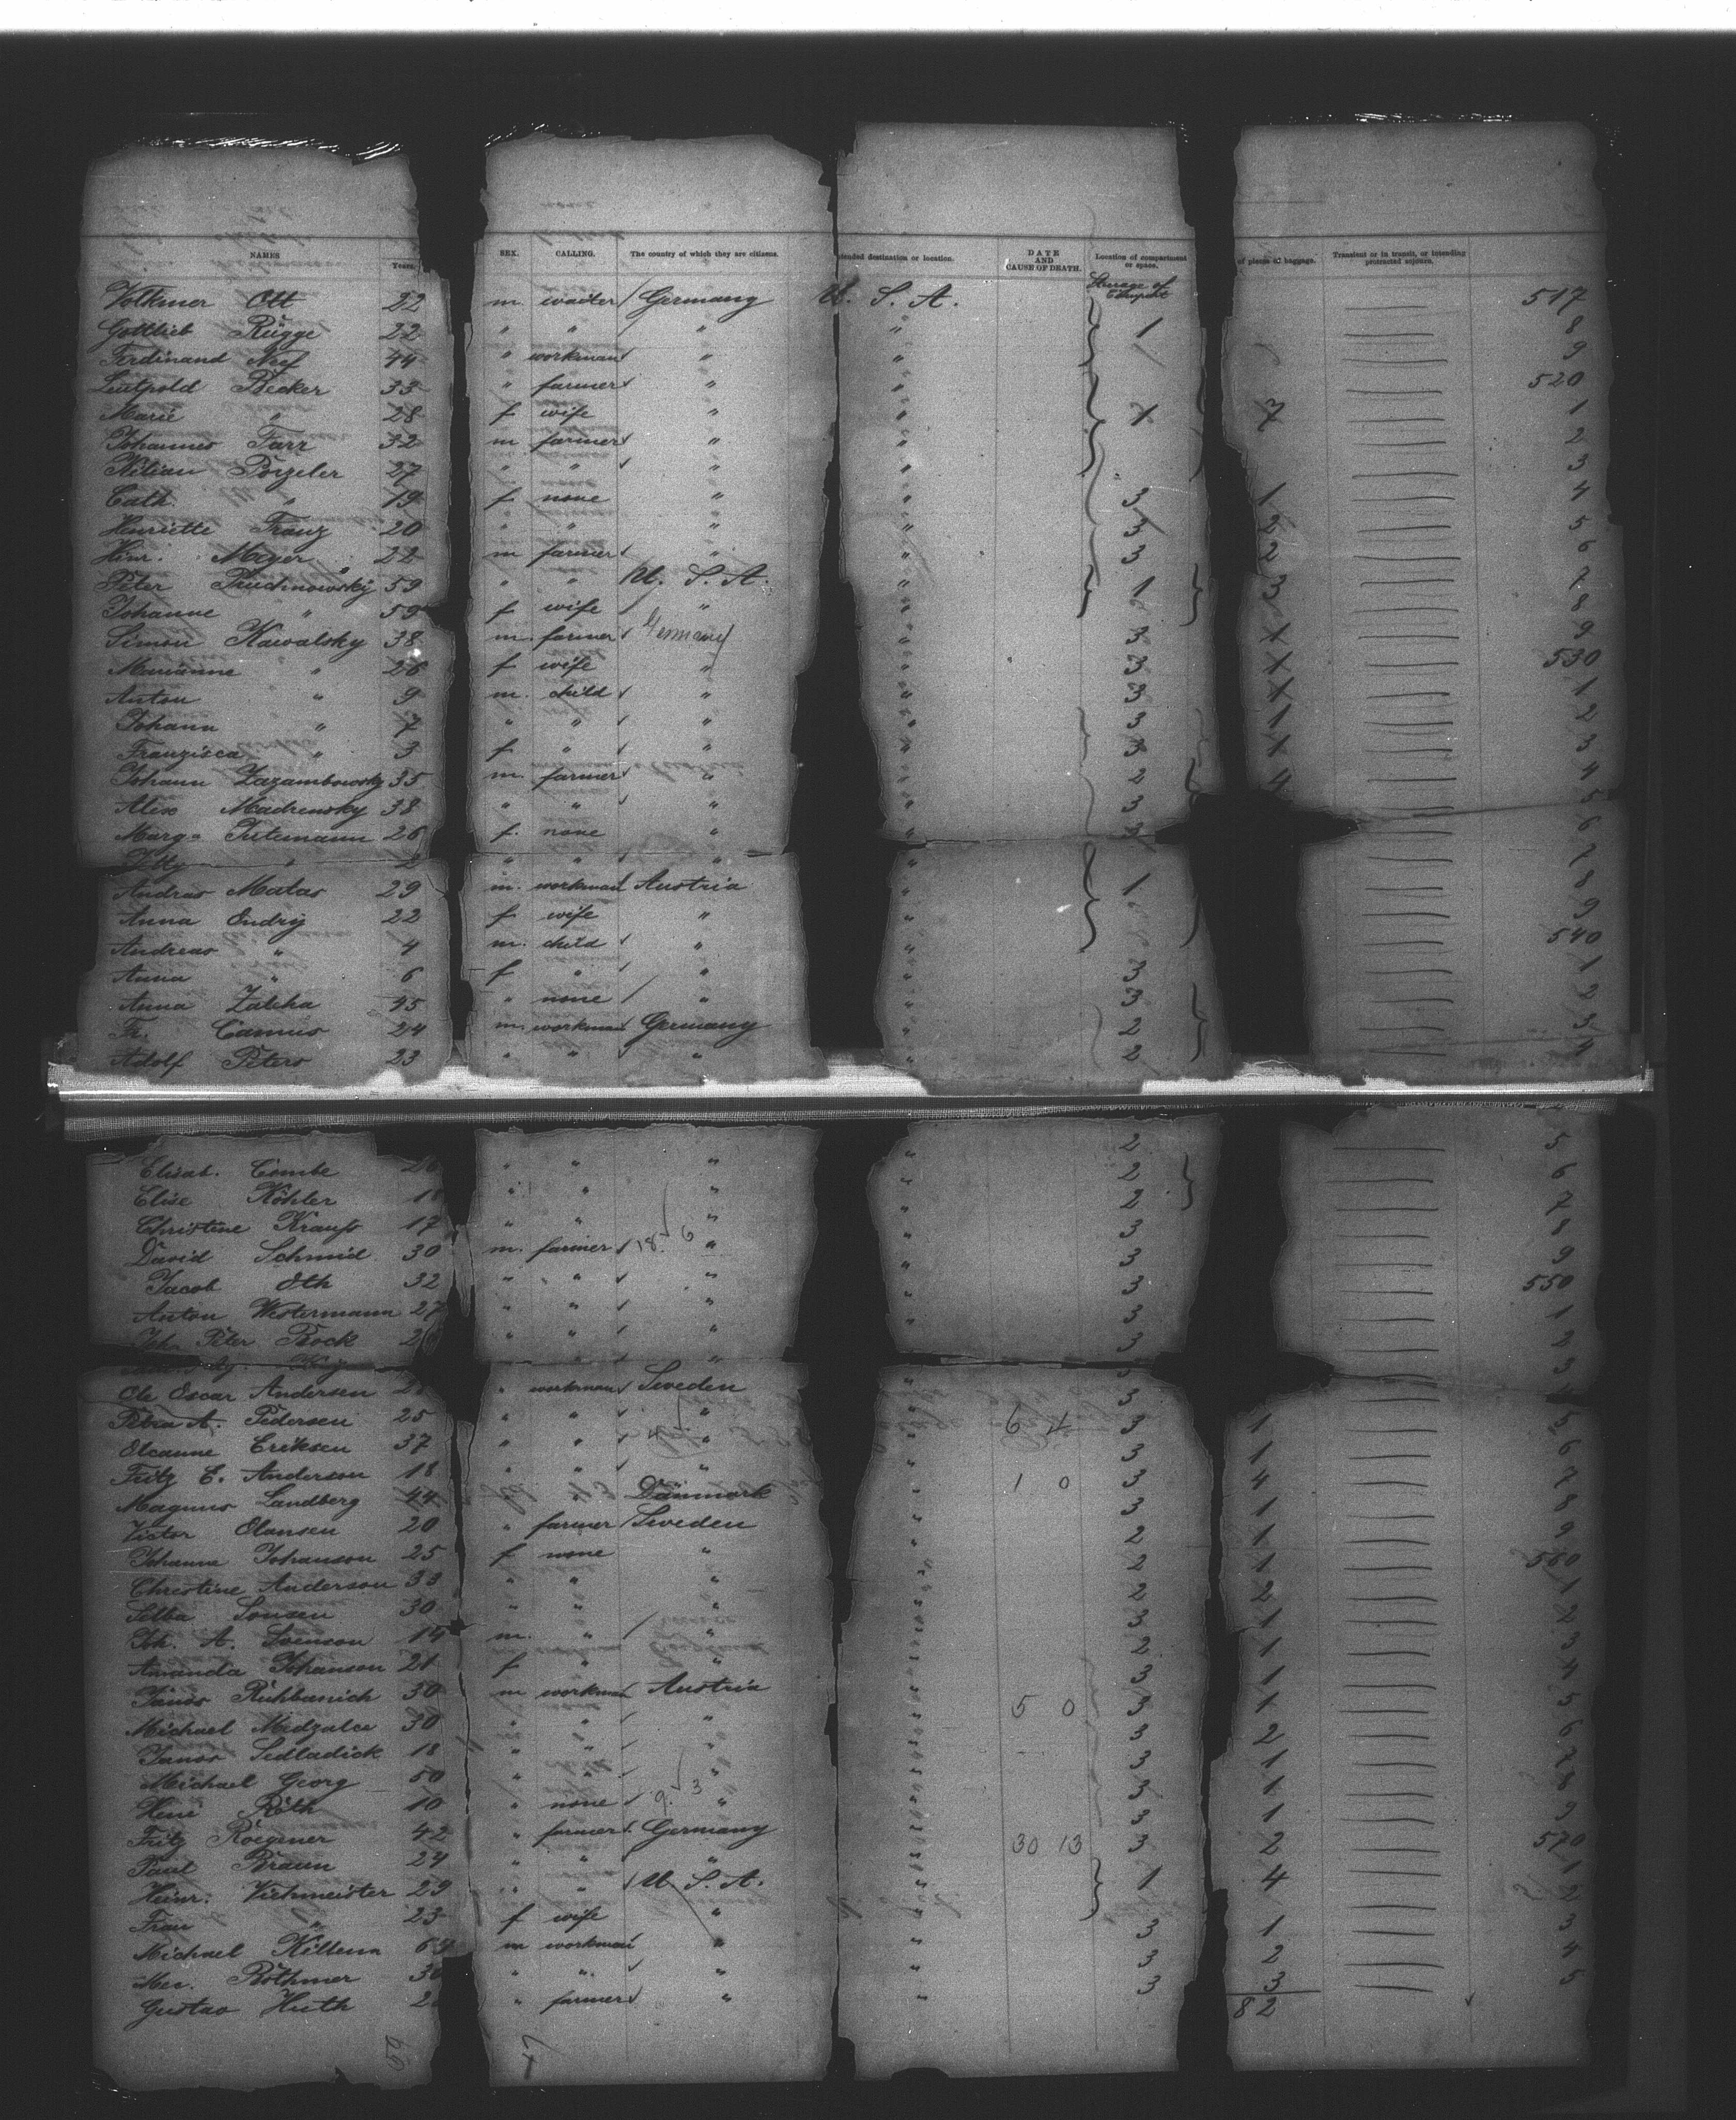 NAMES Years. SEX. CALLING. The country of which they are citizens. tended destination or location. DATE AND CAUSE OF DEATH. Location of compartment or space. of pieces of baggage. Transient or in transit, or intending protracted sojourn.
Volkmer Ott 22 m. waiter Germany U. S. A. Steerage of 517
Gottlieb Rügge 22 " " " " 1 8
Ferdinand Neef 44 " workman " " 9
Luitpold Becker 33 " farmer " " 520
Marie " 28 f wife " " 1 7 1
Johannes Farr 32 m farmer " " 2
Kilian Porzeler 27 " " " " 3
Cath. " 19 f none " " 3 1 4
Henriette Franz 20 " " " " 3 2 5
Hinr. Meyer 22 m farmer " " 3 2 6
Peter 59 " " U. S. A. " 1 3 7
Johanne " 59 f wife " " 8
Simon Kawalsky 38 m. farmer Germany " 3 1 9
Marianne " 26 f wife " " 3 1 530
Anton " 9 m. child " " 3 1 1
Johann " 7 " " " " 3 1 2
Franzisca " 3 f " " " 3 1 3
Johann Zazambowsky 35 m. farmer " " 2 4 4
Alex Madrensky 38 " " " " 3 5
Marg. 26 f. none " " 3 6
" " " " " 7
Andras Matas 29 m. workman Austria " 1 8
Anna Endrij 22 f wife " " 9
Andreas " 4 m. child " " 540
Anna " 6 f " " " 3 1
Anna 45 " none " " 3 2
Fr. Camus 24 m. workman Germany " 2 3
Adolf Peters 23 " " " " 2 4
2 5
Elisab. Combe 26 " " " " 2 6
Elise Köhler 18 " " " " 2 7
Christine Krauss 17 " " " " 3 8
David Schmid 30 m. farmer 18 6 " " 3 9
Jacob Oth 32 " " " " 3 550
Anton Westermann 27 " " " " 3 1
Joh. Peter Bock 26 " " " " 3 2
" " 3 3
Ole Oscar Andersen " workman Sweden " 3
Petra A. Pedersen 25 " " " " 6 4 3 1 5
Oleanne Eriksen 37 " " 4 " " 3 1 6
Fritz E. Anderson 18 " " " " 1 0 3 4 7
Magnus Landberg 44 " " Dänmark " 3 1 8
Victor Olansen 20 " farmer Sweden " 2 1 9
Johanna Johanson 25 f none " " 2 1 560
Christine Anderson 33 " " " " 2 2 1
Selba Jonsen 30 " " " " 3 1 2
Joh. A. Svenson 14 m. " " " 2 1 3
Amanda Johanson 21 f " " " 3 1 4
Janos Ruhbanich 30 m workman Austria " 5 0 3 1 5
Michael Medzalce 30 " " " " 3 2 6
Janos Sedladick 18 " " " " 3 1 7
Michael Georg 50 " " " " 3 1 8
Heni Röth 10 " none 9. 3 " " 3 1 9
Fritz Roegener 42 " farmer Germany " 30 13 3 2 570
Paul Braun 24 " " " " 1 4 1
Heinr. Viehmeister 29 " " U. S. A. " 2
Frau " 23 f wife " " 3 1 3
Michael Killenn m workman " " 3 2 4
Röthmer " " " " 3 3 5
Gustav Huth " farmer " " 82